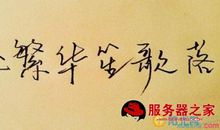 繁华笙歌落
服务器之家